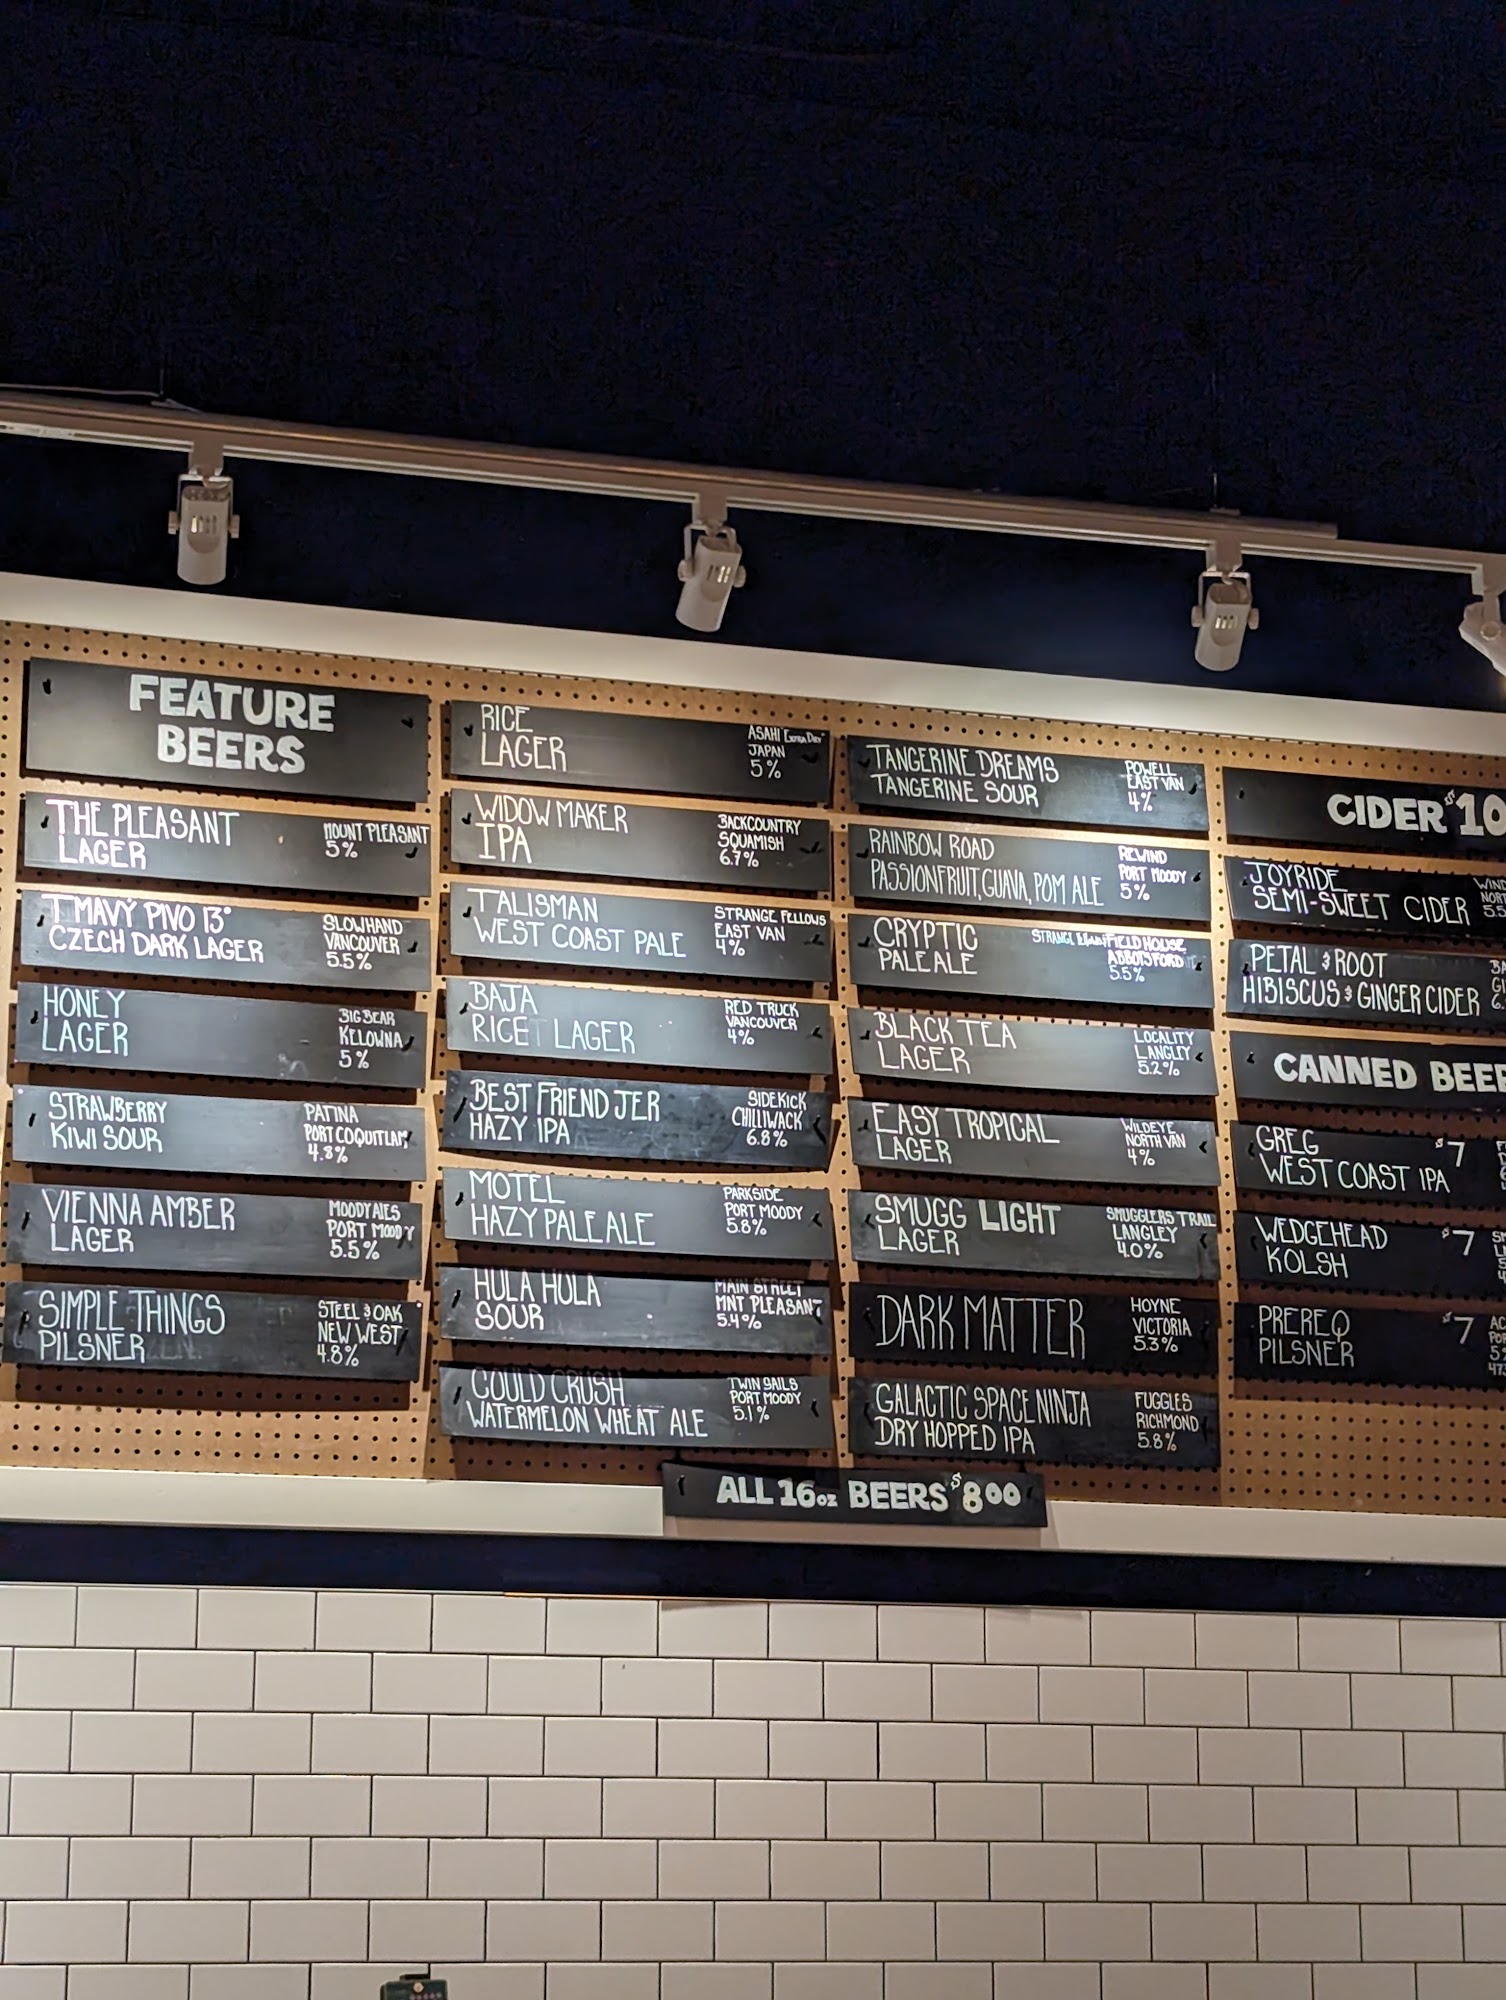 FEATURE
BEERS
THE PLEASANT
LAGER
MOUNT PLEASANT
5%
TMAVÝ PIVO 13°
CZECH DARK LAGER
SLOWHAND
VANCOUVER
5.5%
HONEY
LAGER
BIG BEAR
KELOWNA
5%
STRAWBERRY
KIWI SOUR
PATINA
PORT COQUITLAM
4.8%
VIENNA AMBER
LAGER
MOODY ALES
PORT MOODY
5.5%
SIMPLE THINGS
PILSNER
STEEL & OAK
NEW WEST
4.8%
RICE
LAGER
ASAHI EXTRA DRY
JAPAN
5%
WIDOW MAKER
IPA
BACKCOUNTRY
SQUAMISH
6.7%
TALISMAN
WEST COAST PALE
STRANGE FELLOWS
EAST VAN
4%
BAJA
RICE LAGER
RED TRUCK
VANCOUVER
4%
BEST FRIEND JER
HAZY IPA
SIDEKICK
CHILLIWACK
6.8%
MOTEL
HAZY PALE ALE
PARKSIDE
PORT MOODY
5.8%
HULA HULA
SOUR
MAIN STREET
MNT PLEASANT
5.4%
COULD CRUSH
WATERMELON WHEAT ALE
TWIN SAILS
PORT MOODY
5.1%
TANGERINE DREAMS
TANGERINE SOUR
POWELL
EAST VAN
4%
RAINBOW ROAD
PASSIONFRUIT, GUAVA, POM ALE
REWIND
PORT MOODY
5%
CRYPTIC
PALE ALE
STRANGE FIELD HOUSE
ABBOTSFORD
5.5%
BLACK TEA
LAGER
LOCALITY
LANGLEY
5.2%
EASY TROPICAL
LAGER
WILDEYE
NORTH VAN
4%
SMUGG LIGHT
LAGER
SMUGGLERS TRAIL
LANGLEY
4.0%
DARK MATTER
HOYNE
VICTORIA
5.3%
GALACTIC SPACE NINJA
DRY HOPPED IPA
FUGGLES
RICHMOND
5.8%
CIDER $10
JOYRIDE
SEMI-SWEET CIDER
WIND
NORT
5.5
PETAL & ROOT
HIBISCUS & GINGER CIDER
BA
GI
6.
CANNED BEER
GREG
WEST COAST IPA
$7
WEDGEHEAD
KOLSH
$7
PREREQ
PILSNER
$7
ALL 16oz BEERS $8.00